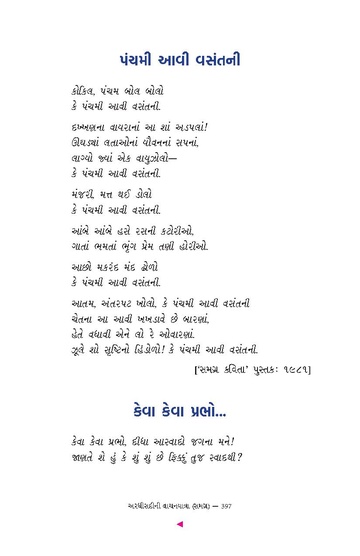 પંચમી આવી વસંતની
કોકિલ, પંચમ બોલ બોલો
કે પંચમી આવી વસંતની.
દખ્ખણના વાયરાનાં આ શાં અડપલાં!
ઊઘડ્યાં લતાઓનાં યૌવનનાં સપનાં,
લાગ્યો જ્યાં એક વાયુઝોલો—
કે પંચમી આવી વસંતની.
મંજરી, મત્ત થઈ ડોલો
કે પંચમી આવી વસંતની.
આંબે આંબે હસે રસની કટોરીઓ,
ગાતાં ભમતાં ભૃંગ પ્રેમ તણી હોરીઓ.
આછો મકરંદ મંદ ઢોળો
કે પંચમી આવી વસંતની.
આતમ, અંતરપટ ખોલો, કે પંચમી આવી વસંતની
ચેતના આ આવી ખખડાવે છે બારણાં,
હેતે વધાવી એને લો રે ઓવારણાં.
ઝૂલે શો સૃષ્ટિનો હિંડોળો! કે પંચમી આવી વસંતની.
['સમગ્ર કવિતા' પુસ્તક: ૧૯૮૧]
કેવા કેવા પ્રભો...
કેવા કેવા પ્રભો, દીધા આસ્વાદો જગના મને!
જાણતે શે હું કે શું શું છે ફિક્કું તુજ સ્વાદથી?
અરધીસદીની વાચનયાત્રા (સમગ્ર) — 397